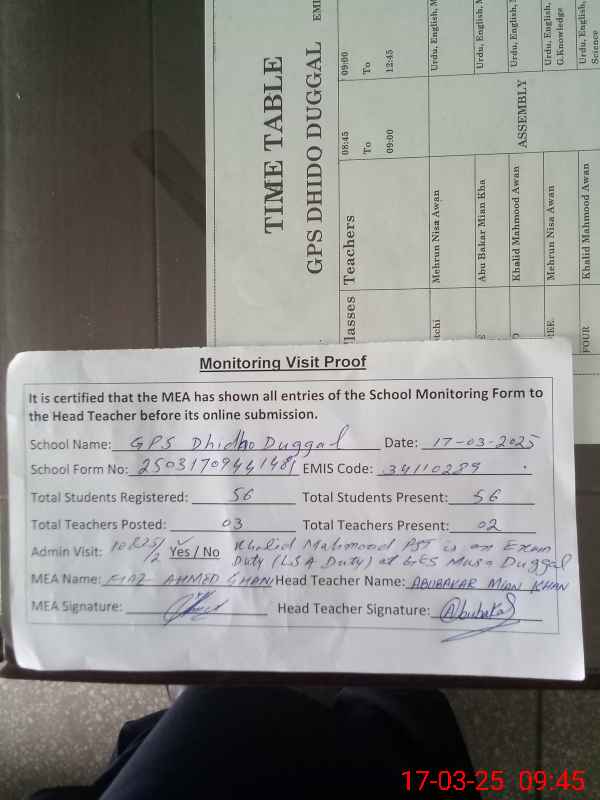 TIME TABLE
GPS DHIDO DUGGAL EMI
Teachers 08:45 To 09:00 09:00 To 12:45
Mehrun Nisa Awan Urdu, English, M
Abu Bakar Mian Kha Urdu, English,
Khalid Mahmood Awan ASSEMBLY Urdu, English,
Mehrun Nisa Awan Urdu, English, G.Knowledge
FOUR Khalid Mahmood Awan Urdu, English, Science
Monitoring Visit Proof
It is certified that the MEA has shown all entries of the School Monitoring Form to
the Head Teacher before its online submission.
School Name: GPS Dhidho Duggal Date: 17-03-2025
School Form No: EMIS Code: 34110289
Total Students Registered: 56 Total Students Present: 56
Total Teachers Posted: 03 Total Teachers Present: 02
Admin Visit: Yes / No Khalid Mahmood PST is on Exam
Duty (LSA Duty) at GES Musa Duggal
MEA Name: AHMED Head Teacher Name: ABUBAKAR MIAN KHAN
MEA Signature: Head Teacher Signature: Abubakar
17-03-25 09:45